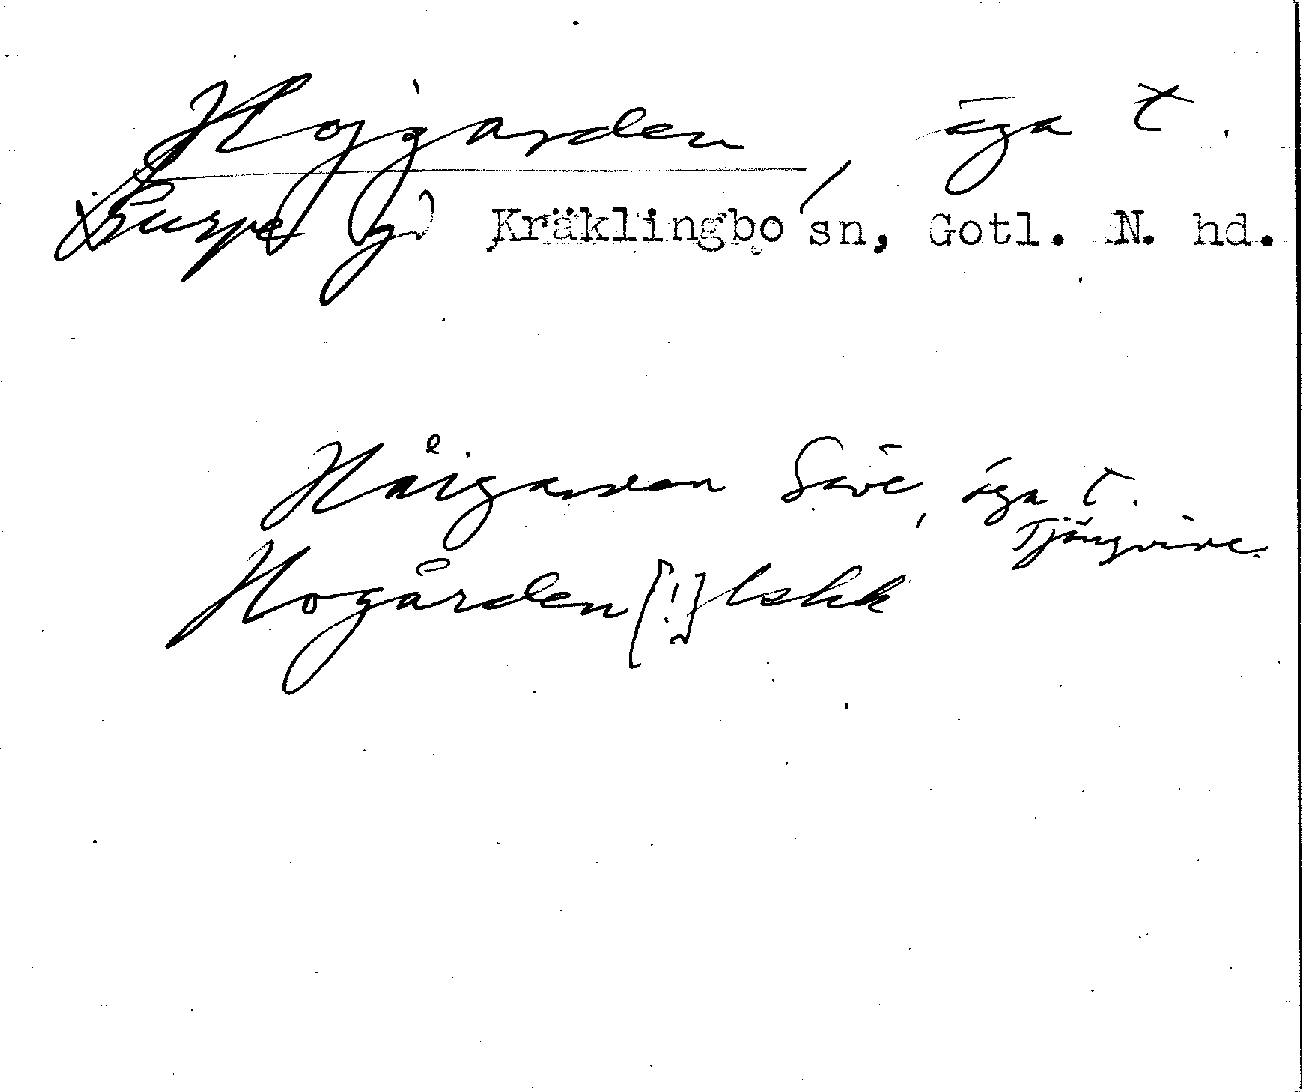 Hojgarden, äga t.
Hurpe g) Kräklingbo sn, Gotl. N. hd.
Håigarden Säve, äga t.
Tjängvive.
Hogården [!] lskk